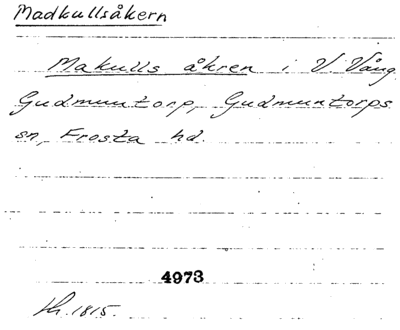 Madkullsåkern
Makulls åkren i V Vång,
Gudmuntorp, Gudmuntorps
sn, Frosta hd.
4973
1815.